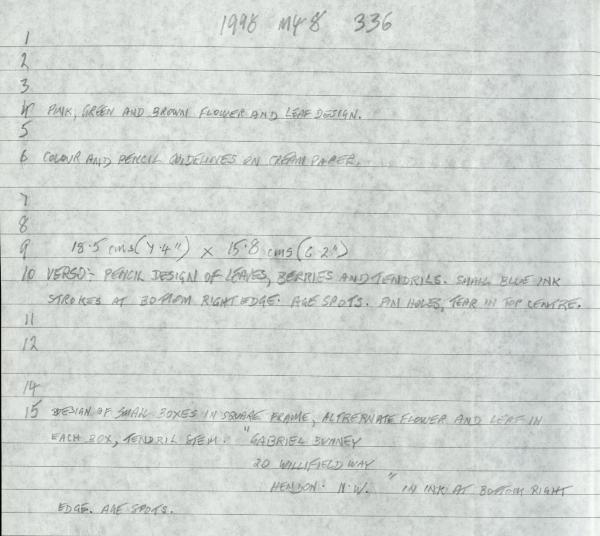 1998 MY8 336
1
2
3
4 PINK, GREEN AND BROWN FLOWER AND LEAF DESIGN.
5
6 COLOUR AND PENCIL GUIDELINES ON CREAM PAPER.
7
8
9 18.5 cms (7.4") × 15.8 cms (6.2")
10 VERSO:- PENCIL DESIGN OF LEAVES, BERRIES AND TENDRILS. SMALL BLUE INK
STROKES AT BOTTOM RIGHT EDGE. AGE SPOTS. PIN HOLES, TEAR IN TOP CENTRE.
11
12
14
15 DESIGN OF SMALL BOXES IN SQUARE FRAME, ALTERNATE FLOWER AND LEAF IN
EACH BOX, TENDRIL STEM. "GABRIEL BUNNEY
20 WILLIFIELD WAY
HENDON. N.W." IN INK AT BOTTOM RIGHT
EDGE. AGE SPOTS.